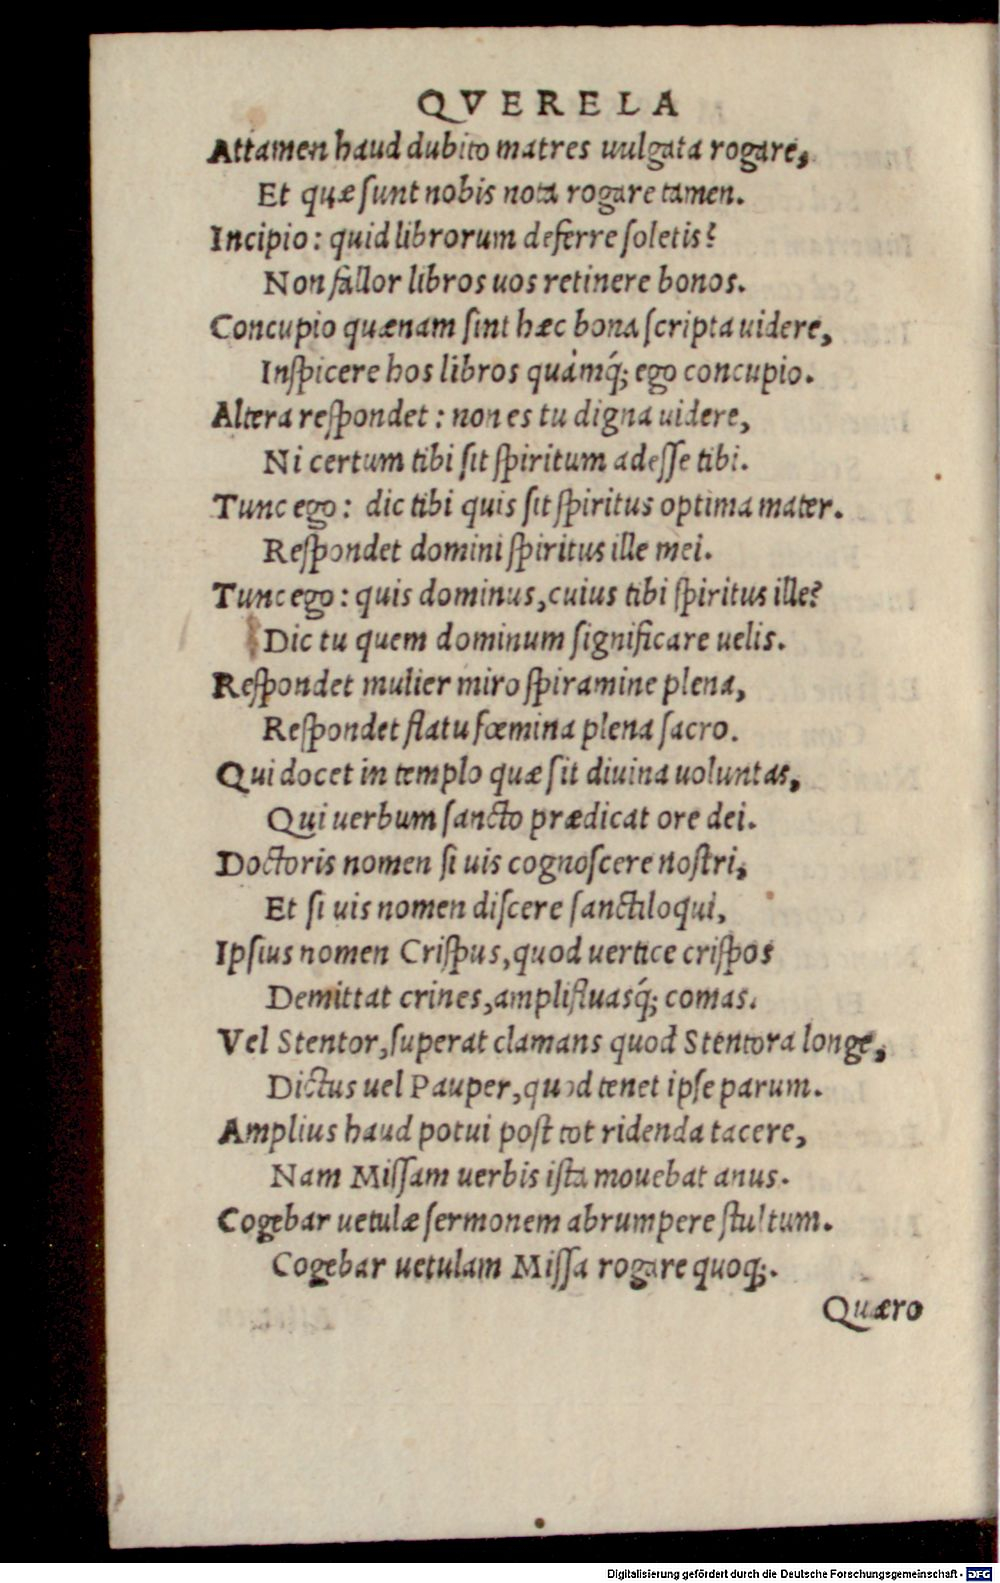 QVERELA
Attamen haud dubito matres uulgata rogare,
Et quæ ſunt nobis nota rogare tamen.
Incipio: quid librorum deferre ſoletis?
Non fallor libros uos retinere bonos.
Concupio quænam ſint hæc bona ſcripta uidere,
Inſpicere hos libros quàmq́; ego concupio.
Altera reſpondet: non es tu digna uidere,
Ni certum tibi ſit ſpiritum adeſſe tibi.
Tunc ego: dic tibi quis ſit ſpiritus optima mater.
Reſpondet domini ſpiritus ille mei.
Tunc ego: quis dominus, cuius tibi ſpiritus ille?
Dic tu quem dominum ſignificare uelis.
Reſpondet mulier miro ſpiramine plena,
Reſpondet flatu fœmina plena ſacro.
Qui docet in templo quæ ſit diuina uoluntas,
Qui uerbum ſancto prædicat ore dei.
Doctoris nomen ſi uis cognoſcere noſtri,
Et ſi uis nomen diſcere ſanctiloqui,
Ipſius nomen Criſpus, quod uertice criſpos
Demittat crines, amplifluasq́; comas.
Vel Stentor, ſuperat clamans quod Stentora longe,
Dictus uel Pauper, quod tenet ipſe parum.
Amplius haud potui poſt tot ridenda tacere,
Nam Miſſam uerbis iſta mouebat anus.
Cogebar uetulæ ſermonem abrumpere ſtultum.
Cogebar uetulam Miſſa rogare quoq;.
Quæro
Digitalisierung gefördert durch die Deutsche Forschungsgemeinschaft - DFG